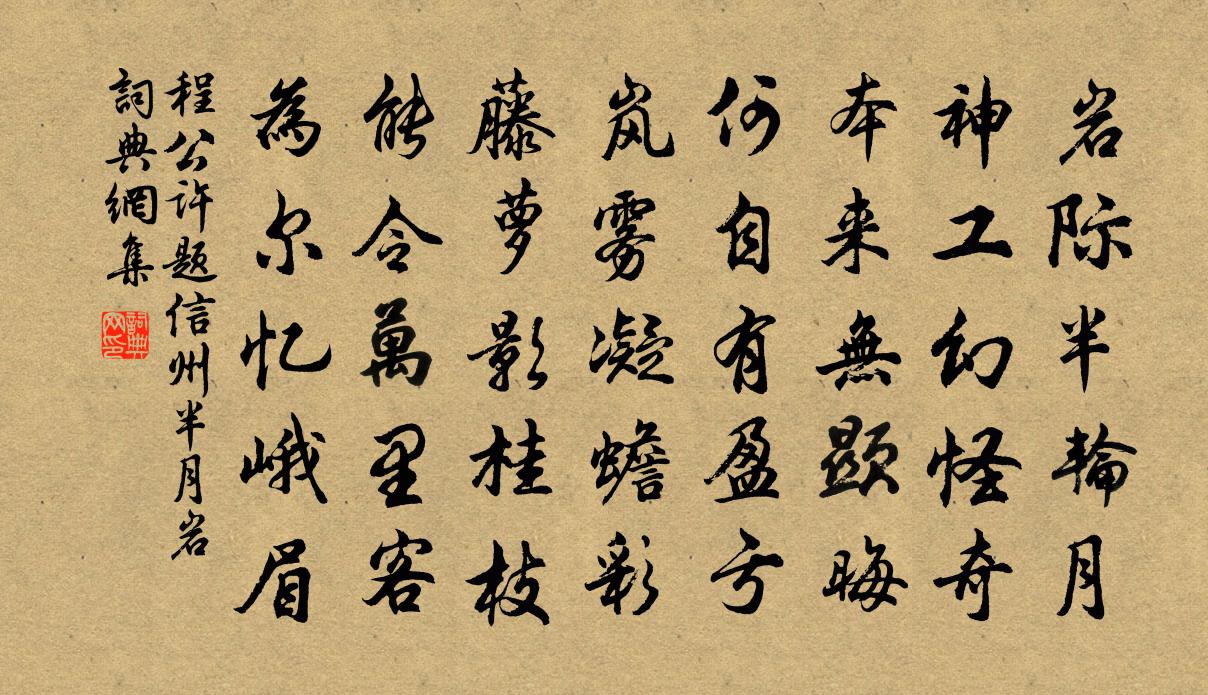 岩际半輪月
神工幻怪奇
本来無顕晦
何自有盈亏
岚雾凝蟾彩
藤萝影桂枝
能令萬里客
為尔忆峨眉
程公许题信州半月岩
詞典網集
詞典网印